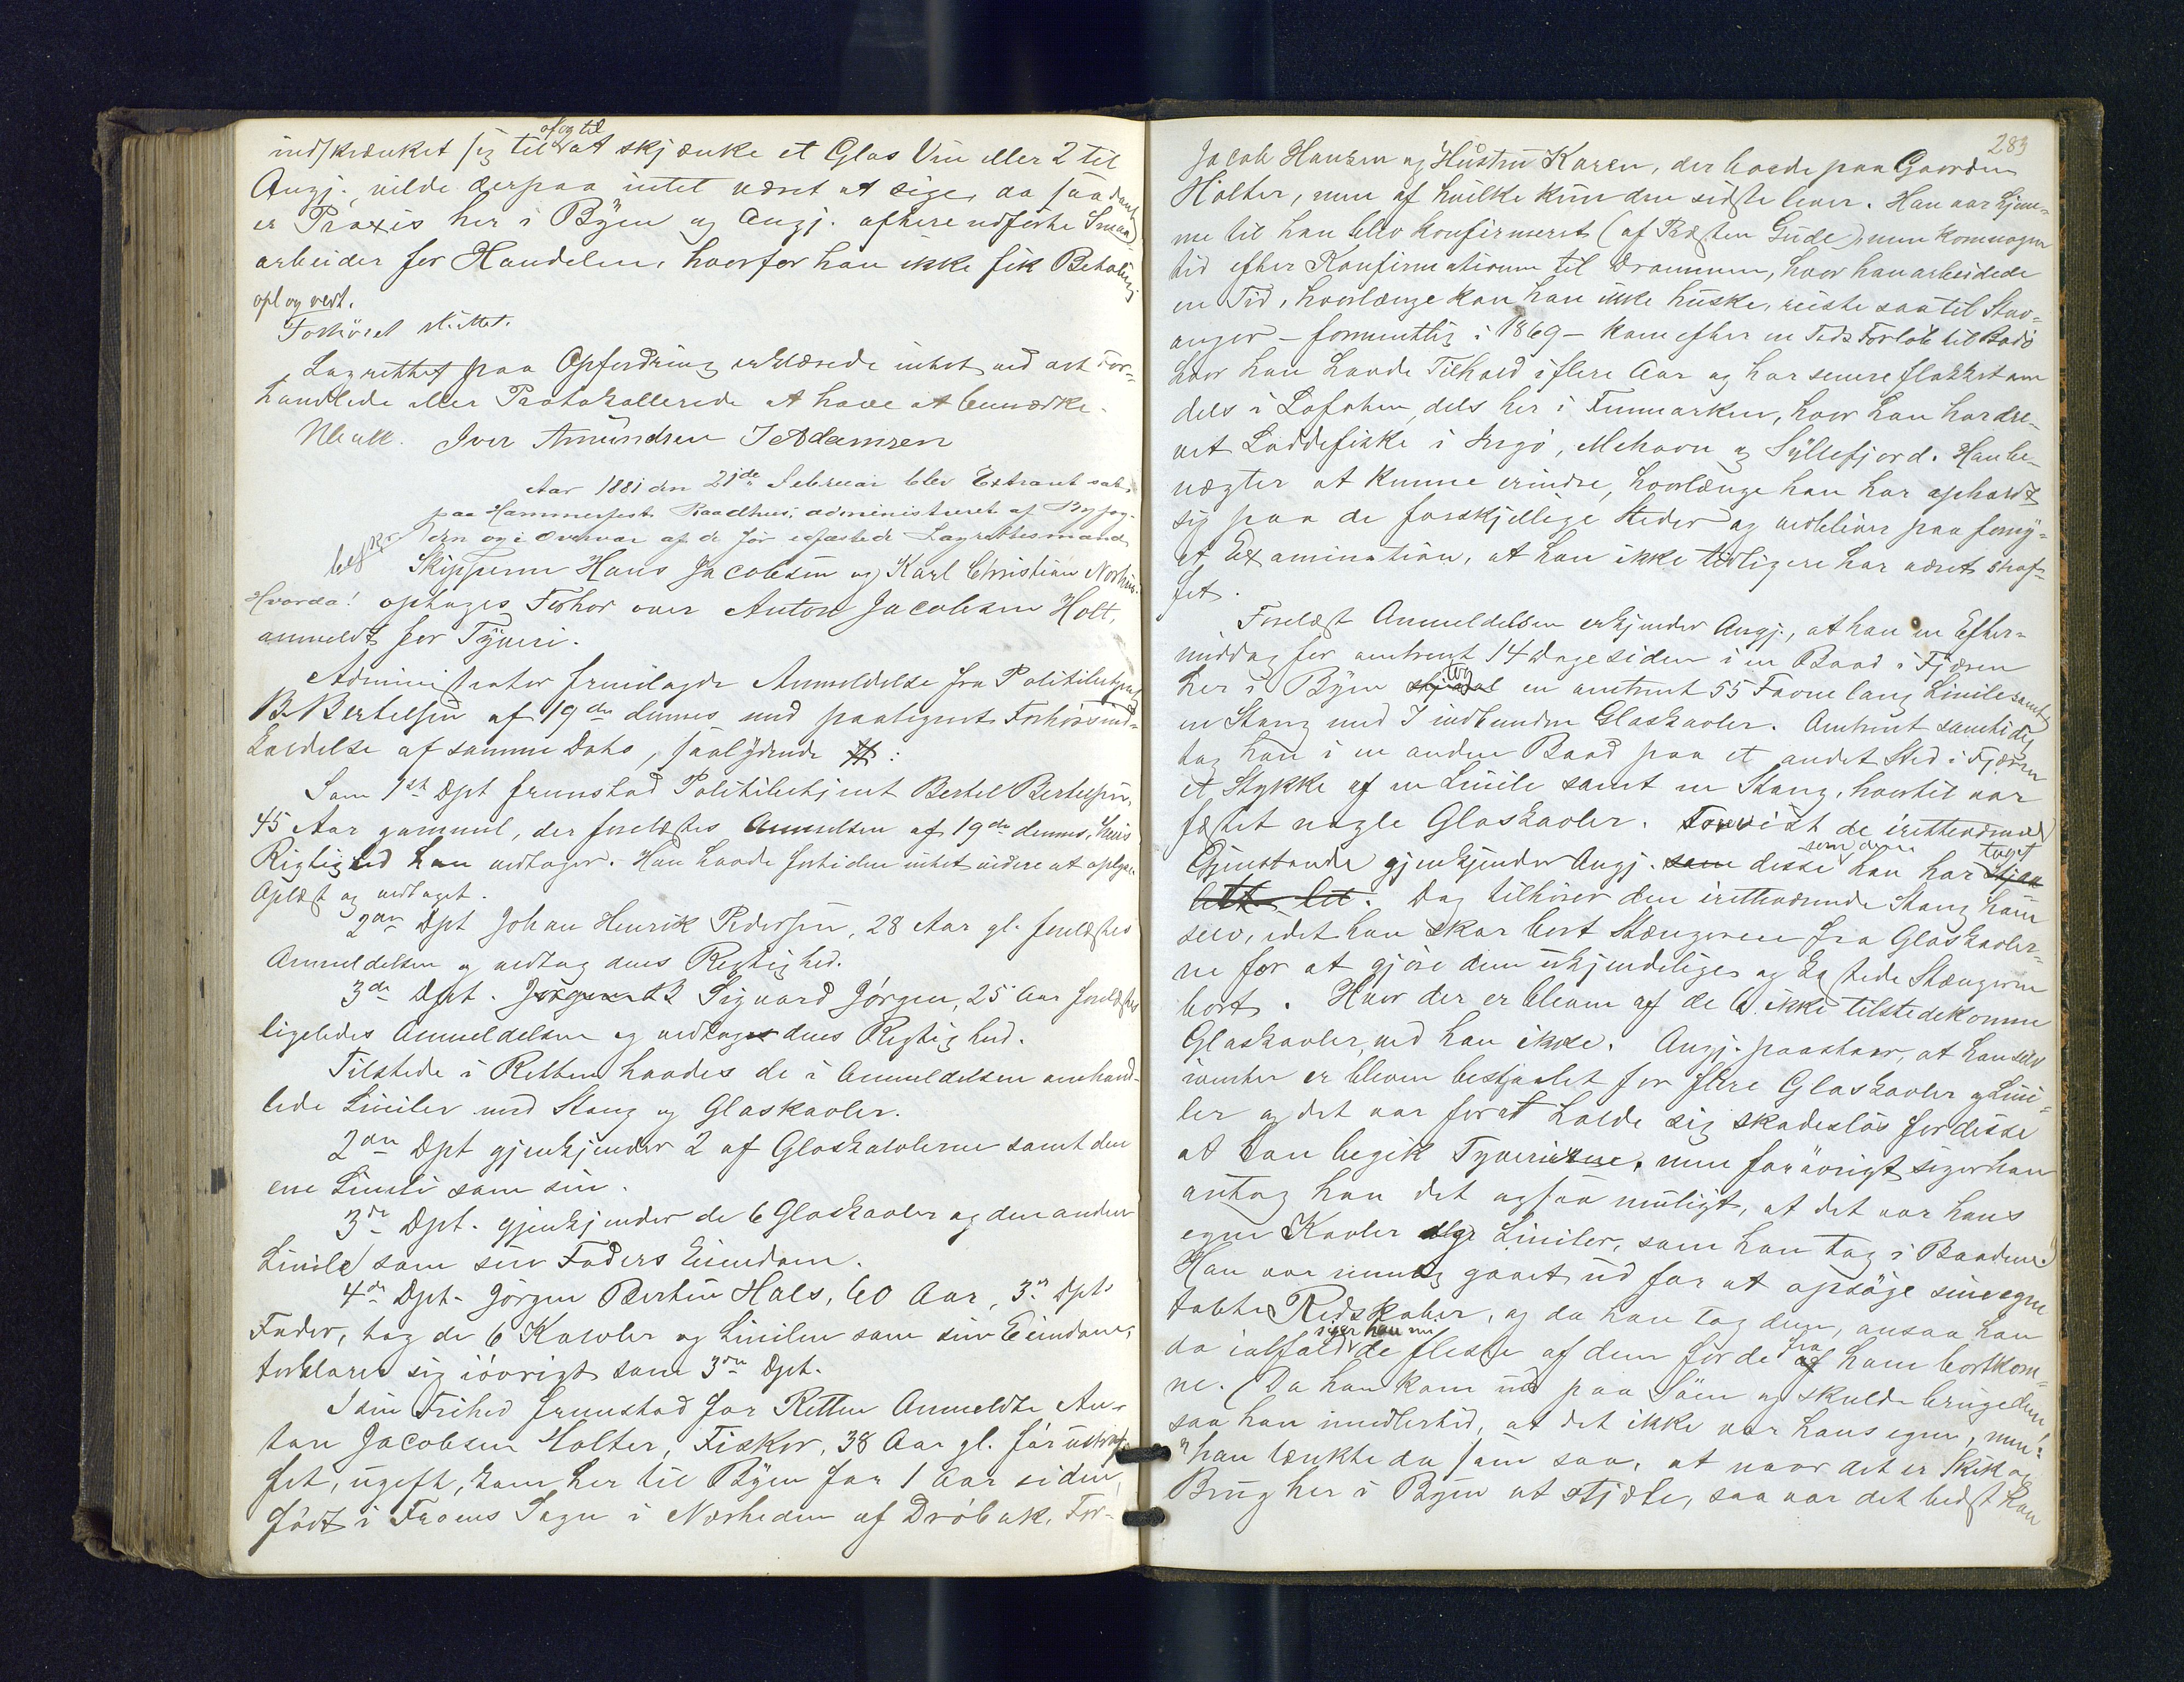 af og til
indskrænket sig til at skjænke et Glas Vin eller 2 til
Angj. vilde derpaa intet været at sige, da saadant
er Praxis her i Byen og Angj. oftere udførte Smaa-
arbeider for Handelen, hvorfor han ikke fik Betaling
opl og vedt.
Forhöret sluttet.
Lagrettet paa Opfordring erklærede intet ved det For-
handlede eller Protokollerede at have at bemærke.
Iver Amundsen J Adamsen
Aar 1881 den 21de Februar blev Extraret sat
paa Hammerfest Raadhus, administreret af Byfog-
den og i Overvær af de før edfæstede Lagrettesmænd
Skipperne Hans Jacobsen og Karl Christian
Hvorda! optoges Forhør over Anton Jacobsen Holt,
anmeldt for Tyveri.
Administrator fremlagde Anmeldelse fra Politibetjent
B. Bertelsen af 19de dennes med paategnet Forhørsind-
kaldelse af samme Dato, saalydende :
Som 1ste Dpt fremstod Politibetjent Bertel Bertelsen,
45 Aar gammel, der forelæstes Anmeldsen af 19de dennes, hvis
Rigtighed han vedtager. Han havde fortiden intet videre at oplyse.
Oplæst og vedtaget.
2den Dpt Johan Henrik Pedersen, 28 Aar gl. forelæstes
Anmeldelsen og vedtog dens Rigtighed.
3de Dpt. Sigvard Jörgen, 25 Aar forelæstes
ligeledes Anmeldelsen og vedtoges dens Rigtighed.
Tilstede i Retten havdes de i Anmeldelsen omhand-
lede Liniler med Stang og Glaskavler.
2den Dpt gjenkjender 2 af Glaskavlerne samt den
ene Linile som sin.
3de Dpt. gjenkjender de 6 Glaskavler og den anden
Linile som sin Faders Eiendom.
4de Dpt. Jörgen Bertin Hals, 60 Aar, 3die Dpts
Fader, tog de 6 Kavler og Linilen som sin Eiendom,
forklarer sig iövrigt som 3die Dpt.
I sin Frihed fremstod for Retten Anmeldte An-
ton Jacobsen Holter, Fisker, 38 Aar gl. för ustraf-
fet, ugift, kom her til Byen for 1 Aar siden,
födt i Froens Sogn i Nærheden af Dröbak, For-
283
Jacob Hansen og Hustru Karen, der boede paa Gaarden
Holter, men af hvilke kun den sidste lever. Han var hjem-
me til han blev konfirmeret (af Præsten Gude) men kom nogen
tid efter Konfirmationen til Drammen, hvor han arbeidede
en Tid, hvorlænge kan han ikke huske, reiste saa til Stav-
anger - formentlig i 1869 - kom efter en Tids Forløb til Bodö
hvor han havde Tilhold i flere Aar og har senere flakket om
dels i Lofoten, dels her i Finmarken, hvor han har dre-
vet Loddefiske i Ingö, Mehavn og Syltefjord. Han be-
nægter at kunne erindre, hvorlænge han har opholdt
sig paa de forskjellige Steder og vedbliver paa forny-
et Examination, at han ikke tidligere har været straf-
fet.
Forelæst Anmeldelsen erkjender Angj., at han en Efter-
middag for omtrent 14 Dage siden i en Baad i Fjæren
her i Byen stjaal tog en omtrent 55 Favne lang Linile samt
en Stang med 7 indbundne Glaskavler. Omtrent samtidig
tog han i en anden Baad paa et andet Sted i Fjæren
et Stykke af en Linile samt en Stang, hvortil var
fæstet nogle Glaskavler. Forevist de iretteværende
Gjenstande gjenkjender Angj. som disse som dem han har stjaa taget
let. Dog tilhører den iretteværende Stang ham
selv, idet han skar bort Stængerne fra Glaskavler-
ne for at gjøre dem ukjendelige og kastede Stængerne
bort. Hvor der er bleven af de 6 ikke tilstedekomne
Glaskavler, ved han ikke. Angj. paastaar, at han selv
ivinter er bleven bestjaalet for flere Glaskavler og Lini-
ler og det var for at holde sig skadeslös for disse
at han begik Tyverierne, men forövrigt siger han
antog han det ogsaa muligt, at det var hans
egne Kavler og Liniler, som han tog i Baadene.
Han var nemlig gaaet ud for at opsöge sine egne
tabte Redskaber, og da han tog dem, ansaa han
siger han nu
da ialfald de fleste af dem for de af fra ham bortkom-
ne. Da han kom ud paa Söen og skulde bruge dem
saa han imidlertid, at det ikke var hans egne, men
han tænkte da som saa, at naar det er Skik og
Brug her i Byen at stjæle, saa var det bedst han